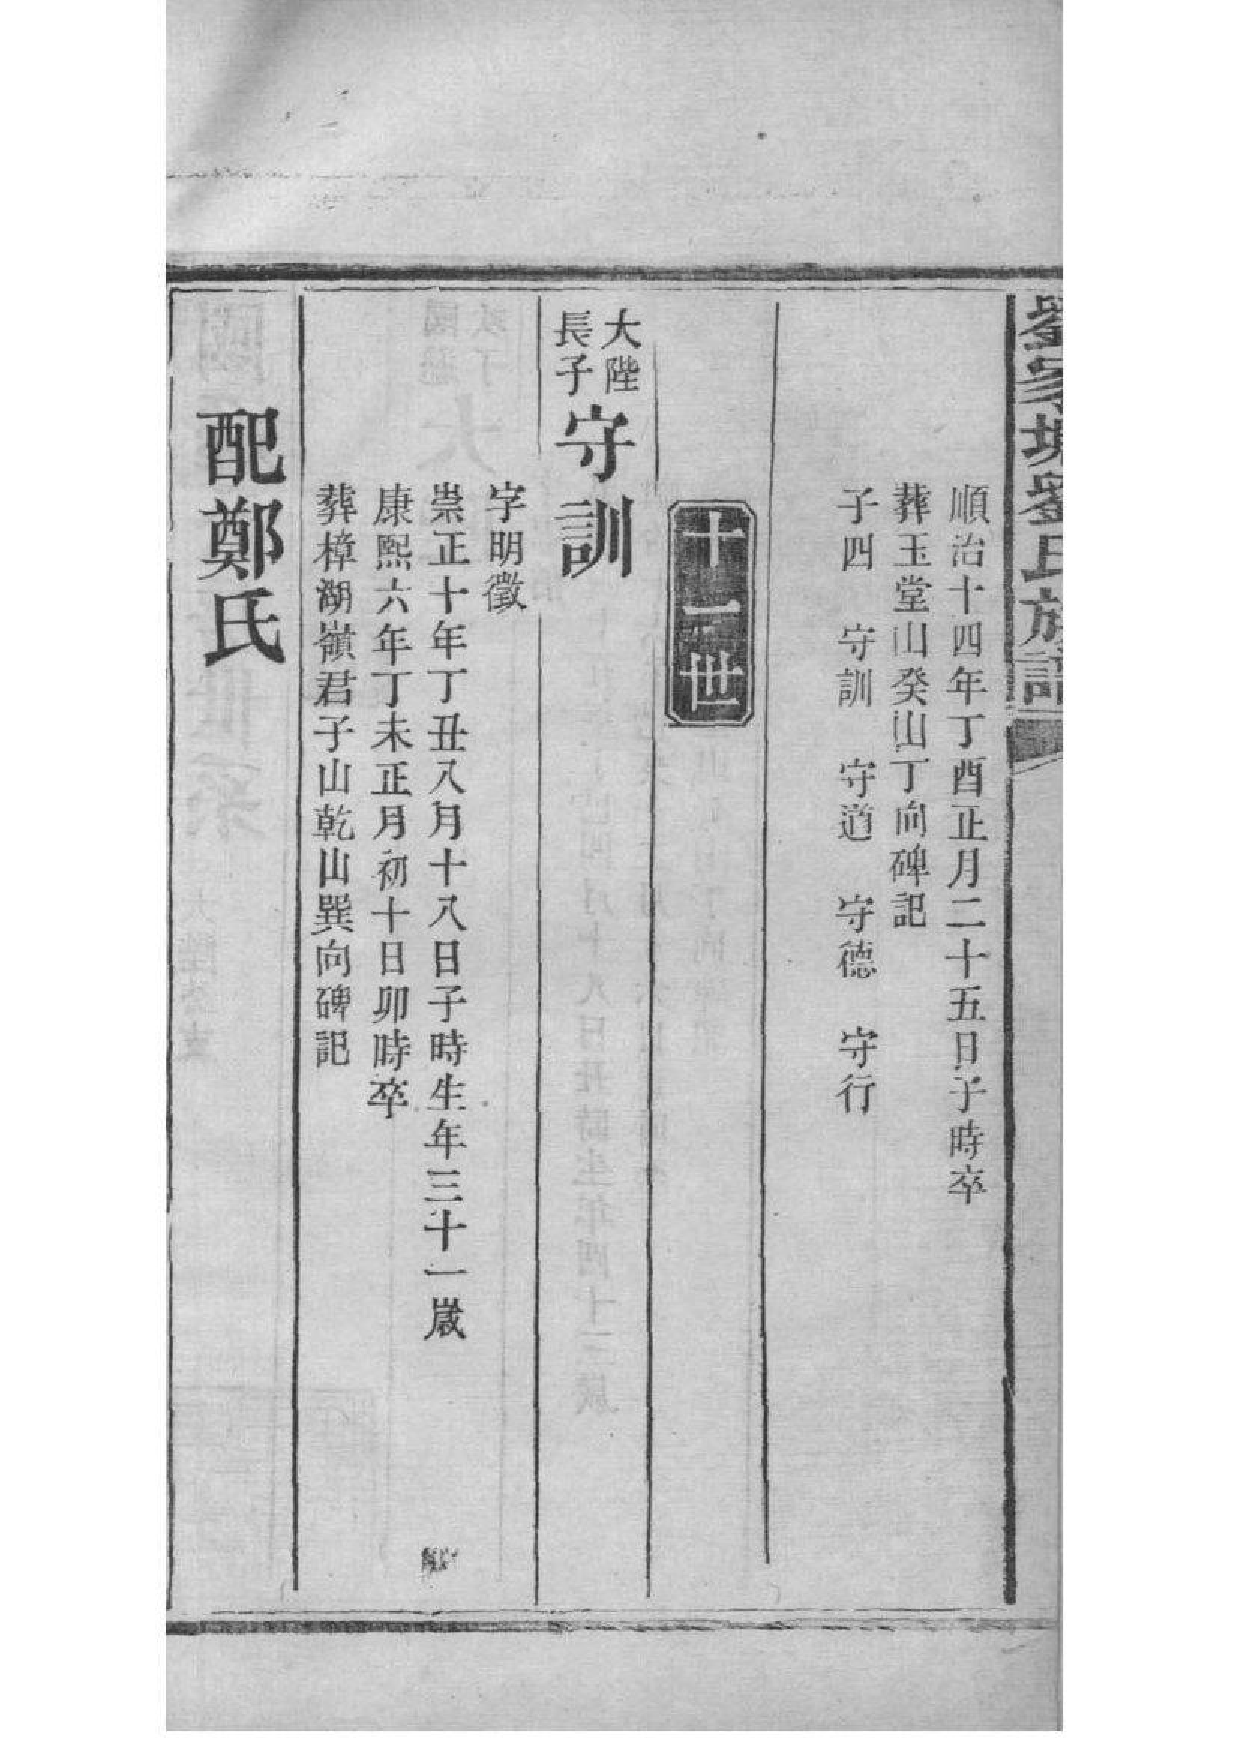 劉家塘劉氏族譜
順治十四年丁酉正月二十五日子時卒
葬玉堂山癸山丁向碑記
子四　守訓　守道　守德　守行
十一世
大陛
長子
守訓
字明徵
崇正十年丁丑八月十八日子時生年三十一歲
康熙六年丁未正月初十日卯時卒
葬樟湖嶺君子山乾山巽向碑記
配鄭氏